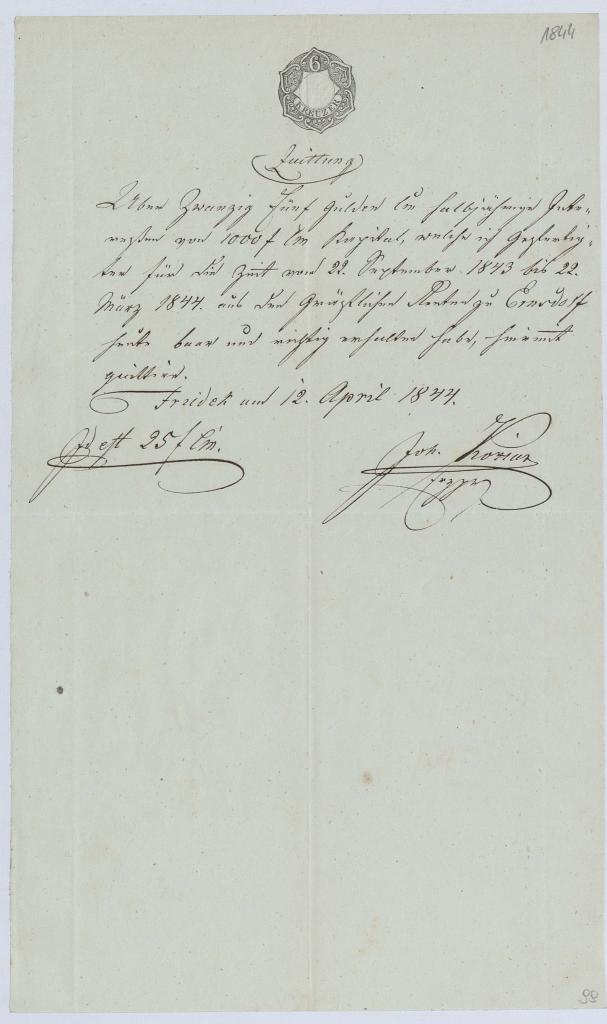 1844
6
KREUZER
Quittung
Über Zwanzig Fünf Gulden CM halbjährige Inte-
reßen von 1000 f CM Kapital, welche ich Gefertig-
ter für die Zeit vom 22. September 1843 bis 22.
März 1844. aus den Gräflichen Renten zu
heute baar und richtig erhalten habe, hiermit
quittire.
Friedek am 12. April 1844.
Id est 25 f CM.
Joh.
99